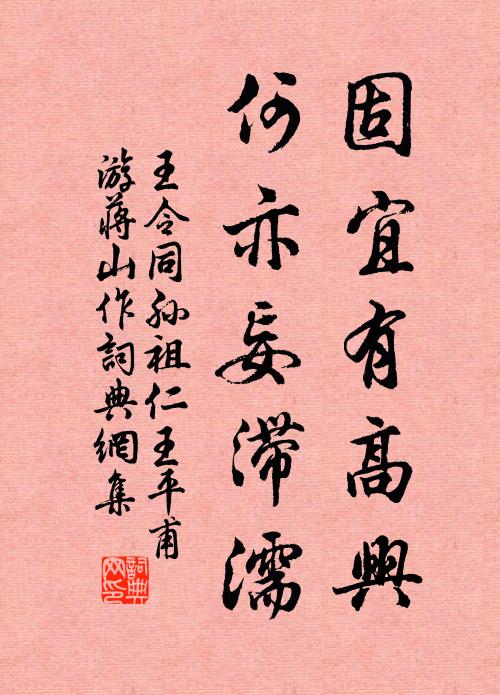 固宜有高興
何亦妄滯濡
王令同孫祖仁王平甫
游蔣山作詞典網集
詞典网印